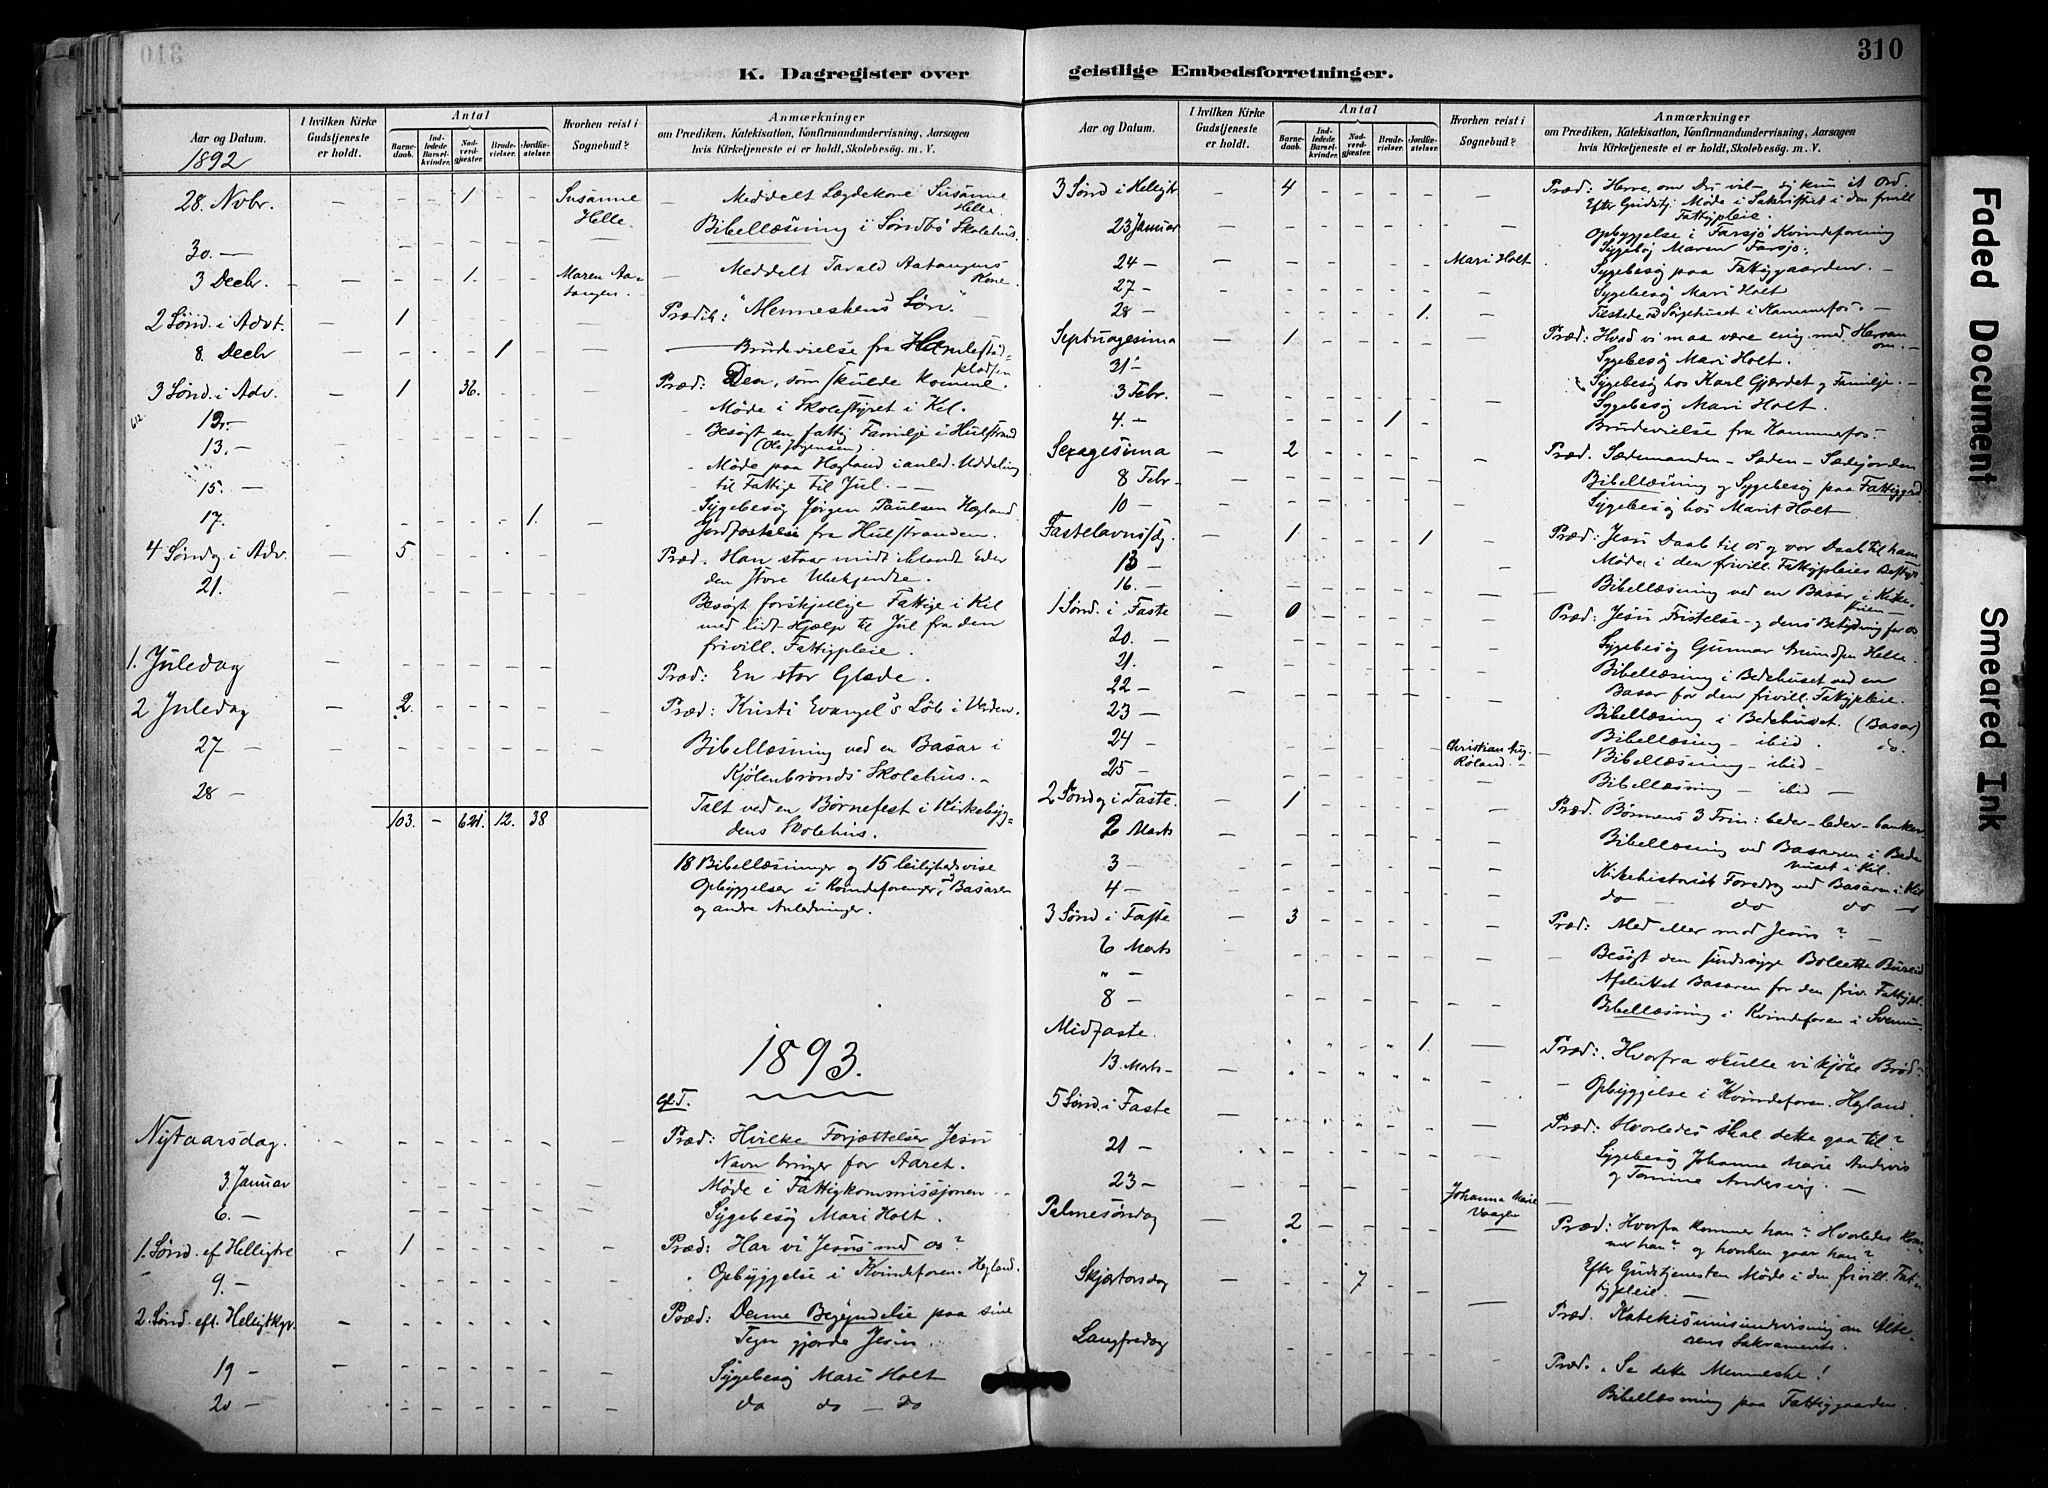 310
K. Dagregister over
geistlige Embedsforretninger.
Aar og Datum.
1892
I hvilken Kirke Gudstjeneste er holdt.
Antal
Barnedaab.
Indledede Barselkvinder.
Nadverdgjæster.
Brudevielser.
Jordfæstelser.
Hvorhen reist i Sognebud?
Anmærkninger
om Prædiken, Katekisation, Konfirmandundervisning, Aarsagen
hvis Kirketjeneste ei er holdt, Skolebesøg. m. V.
28. Novbr. - - - 1 - - Susanne Helle - Meddelt Lægdekone Susanne Helle.
30. - Bibellæsning i Søndbø Skolehus.
3 Decbr. - - - 1. - - Maren Aatangen. - Meddelt Tarald Aatangens Kone.
2 Sønd. i Advt. - 1 - - - - - Prædik: "Menneskens Søn."
8. Decbr - - - - 1 - - Brudevielse fra
3 Sønd. i Adv. - 1 - 36. - - - Præd: Den, som skulde komme.
Møde i Skolestyret i Kil.
13. - Besøgt en fattig Familje i Hulstrand
(Ole Jørgensen).
15. - Møde paa Hegland i anled. Uddeling
til Fattige til Jul. -
17. - - - - - 1. - Sygebesøg Jørgen Paulsen Hegland.
Jordfæstelse fra Hulstranden.
4 Søndg i Adv. - 5 - - - - - Præd. Han staar midt iblandt Eder
den store Ubekjendte.
21. Besøgt forskjellige Fattige i Kil
med lidt Hjælp til Jul fra den
frivill. Fattigpleie.
1. Juledag - - - - - - - Præd: En stor Glæde.
2 Juledag - 2. - - - - - Præd: Kristi Evangel's Løb i Verden.
27 - - - - - - - Bibellæsning ved en Basar i
Kjølebrønds Skolehus. -
28 - Talt ved en Børnefest i Kirkebyg-
dens Skolehus.
103. - 621. 12. 38
18 Bibellæsninger og 15 leilighedsvise
Opbyggelser i Kvindeforeninger, ved Basarer
og andre Anledninger.
1893.
Nytaarsdag. - - - - - - - Præd: Hvilke Forjættelser Jesu
Navn bringer for Aaret.
3. Januar - - - - - - Møde i Fattigkommissjonen -
6. - - - - - - - Sygebesøg Mari Holt.
1. Sønd. ef Helligtre - 1 - - - - - Præd: Har vi Jesus med os?
9. - - - - - - - Opbyggelse i Kvindeforen. Hegland.
2. Sønd. eft. Helligtkgr. - - - - - - - Præd: Denne Begyndelse paa sine
Tegn gjorde Jesus.
19 - - - - - - - - Sygebesøg Mari Holt
20 - - - - - - do do - do
Aar og Datum.
I hvilken Kirke Gudstjeneste er holdt.
Antal
Barnedaab.
Indledede Barselkvinder.
Nadverdgjæster.
Brudevielser.
Jordfæstelser.
Hvorhen reist i Sognebud?
Anmærkninger
om Prædiken, Katekisation, Konfirmandundervisning, Aarsagen
hvis Kirketjeneste ei er holdt, Skolebesøg. m. V.
3 Sønd i Helligtr - 4 - - - - - Præd: Herre, om Du vil - sig kun et Ord
Efter Gudstj. Møde i Sakristiet i den frivill
Fattigpleie.
23 Januar - - - - - - - Opbyggelse i Farsjø Kvindeforening
Sygebesøg Maren Farsjø.
24 - - - - - - - Mari Holt. Sygebesøg paa Fattiggaarden. -
27 - - - - - - - Sygebesøg Mari Holt
28 - - - - - 1. - Tilstede ved Sørgehuset i Kammerfos. -
Septuagesima - 1 - - - - - Præd: Hvad vi maa være enig med Herren om. -
31 - Sygebesøg Mari Holt.
3 Febr. - - - - - - Sygebesøg hos Karl Gjerdet og Familje. -
Sygebesøg Mari Holt.
4. - - - - 1 - - Brudevielse fra Kammerfos. -
Sexagesima - 2 - - - - - Præd. Sædemanden - Sæden - Sædejorden
8 Febr. - - - - - - Bibellæsning og Sygebesøg paa Fattiggrd.
10 - - - - - - - Sygebesøg hos Marit Holt
Fastelavnssdg. - 1 - - - 1 - Præd: Jesu Daab til os og vor Daab til ham
13 - - - - - - - Møde i den frivill. Fattigpleies Bestyr.
16. - - - - - - - Bibellæsning ved en Basar i Kirke-
1 Sønd. i Faste - 0 - - - - - Præd: Jesu Fristelse - og dens Betydning for os
20. - - - - - - - Sygebesøg Gunnar Helle.
21. - - - - - - Bibellæsning i Bedehuset ved en
Basar for den frivill. Fattigpleie.
22 - - - - - - - Bibellæsning i Bedehuset. (Basar)
23 - - - - - - - Bibellæsning - ibid. do.
24 - - - - - - - Christian Aug. Røland. - Bibellæsning - ibid -
25 - - - - - - - Bibellæsning - ibid -
2 Søndg i Faste. - 1 - - - - - Præd. Bønnens 3 Trin: beder - leder - banker
2 Marts - - - - - - Bibellæsning ved Basaren i Bede-
huset i Kil.
3 - - - - - - - Kirkehistorisk Foredrag ved Basaren i Kil
4 - - - - - - - do - do do -
3 Sønd i Faste - 3 - - - - - Præd: Med eller mod Jesus? -
6 Marts - - - - - - - Besøgt den sindssyge Bolette
" - - - - - - - Afsluttet Basaren for den friv. Fattigpl.
8 - - - - - - - Bibellæsning i Kvindeforen i
Midfaste. " " - " 1. - Præd: Hvorfra skulle vi kjøbe Brød -
13. Marts - - - - - - - Opbyggelse i Kvindeforen. Hegland.
5 Sønd. i Faste - - - - - - - Præd: Hvorledes skal dette gaa til?
21 - - - - - - - Sygebesøg Johanne Marie
23 - - - - - - - Johanna Marie -
Palmesøndag - 2 - - - - - Præd: Hvorfra kommer han? Hvorledes kom-
mer han? og hvorhen gaar han?
Efter Gudstjenesten Møde i den frivill. Fat-
tigpleie. -
Skjærtorsdag - - - 7 - - - Præd. Katekismusundervisning om Alte-
rens Sakramente.
Langfredag - - - - - - Præd. . Se dette Menneske!
Bibellæsning paa Fattiggaarden.
Faded Document
Smeared Ink